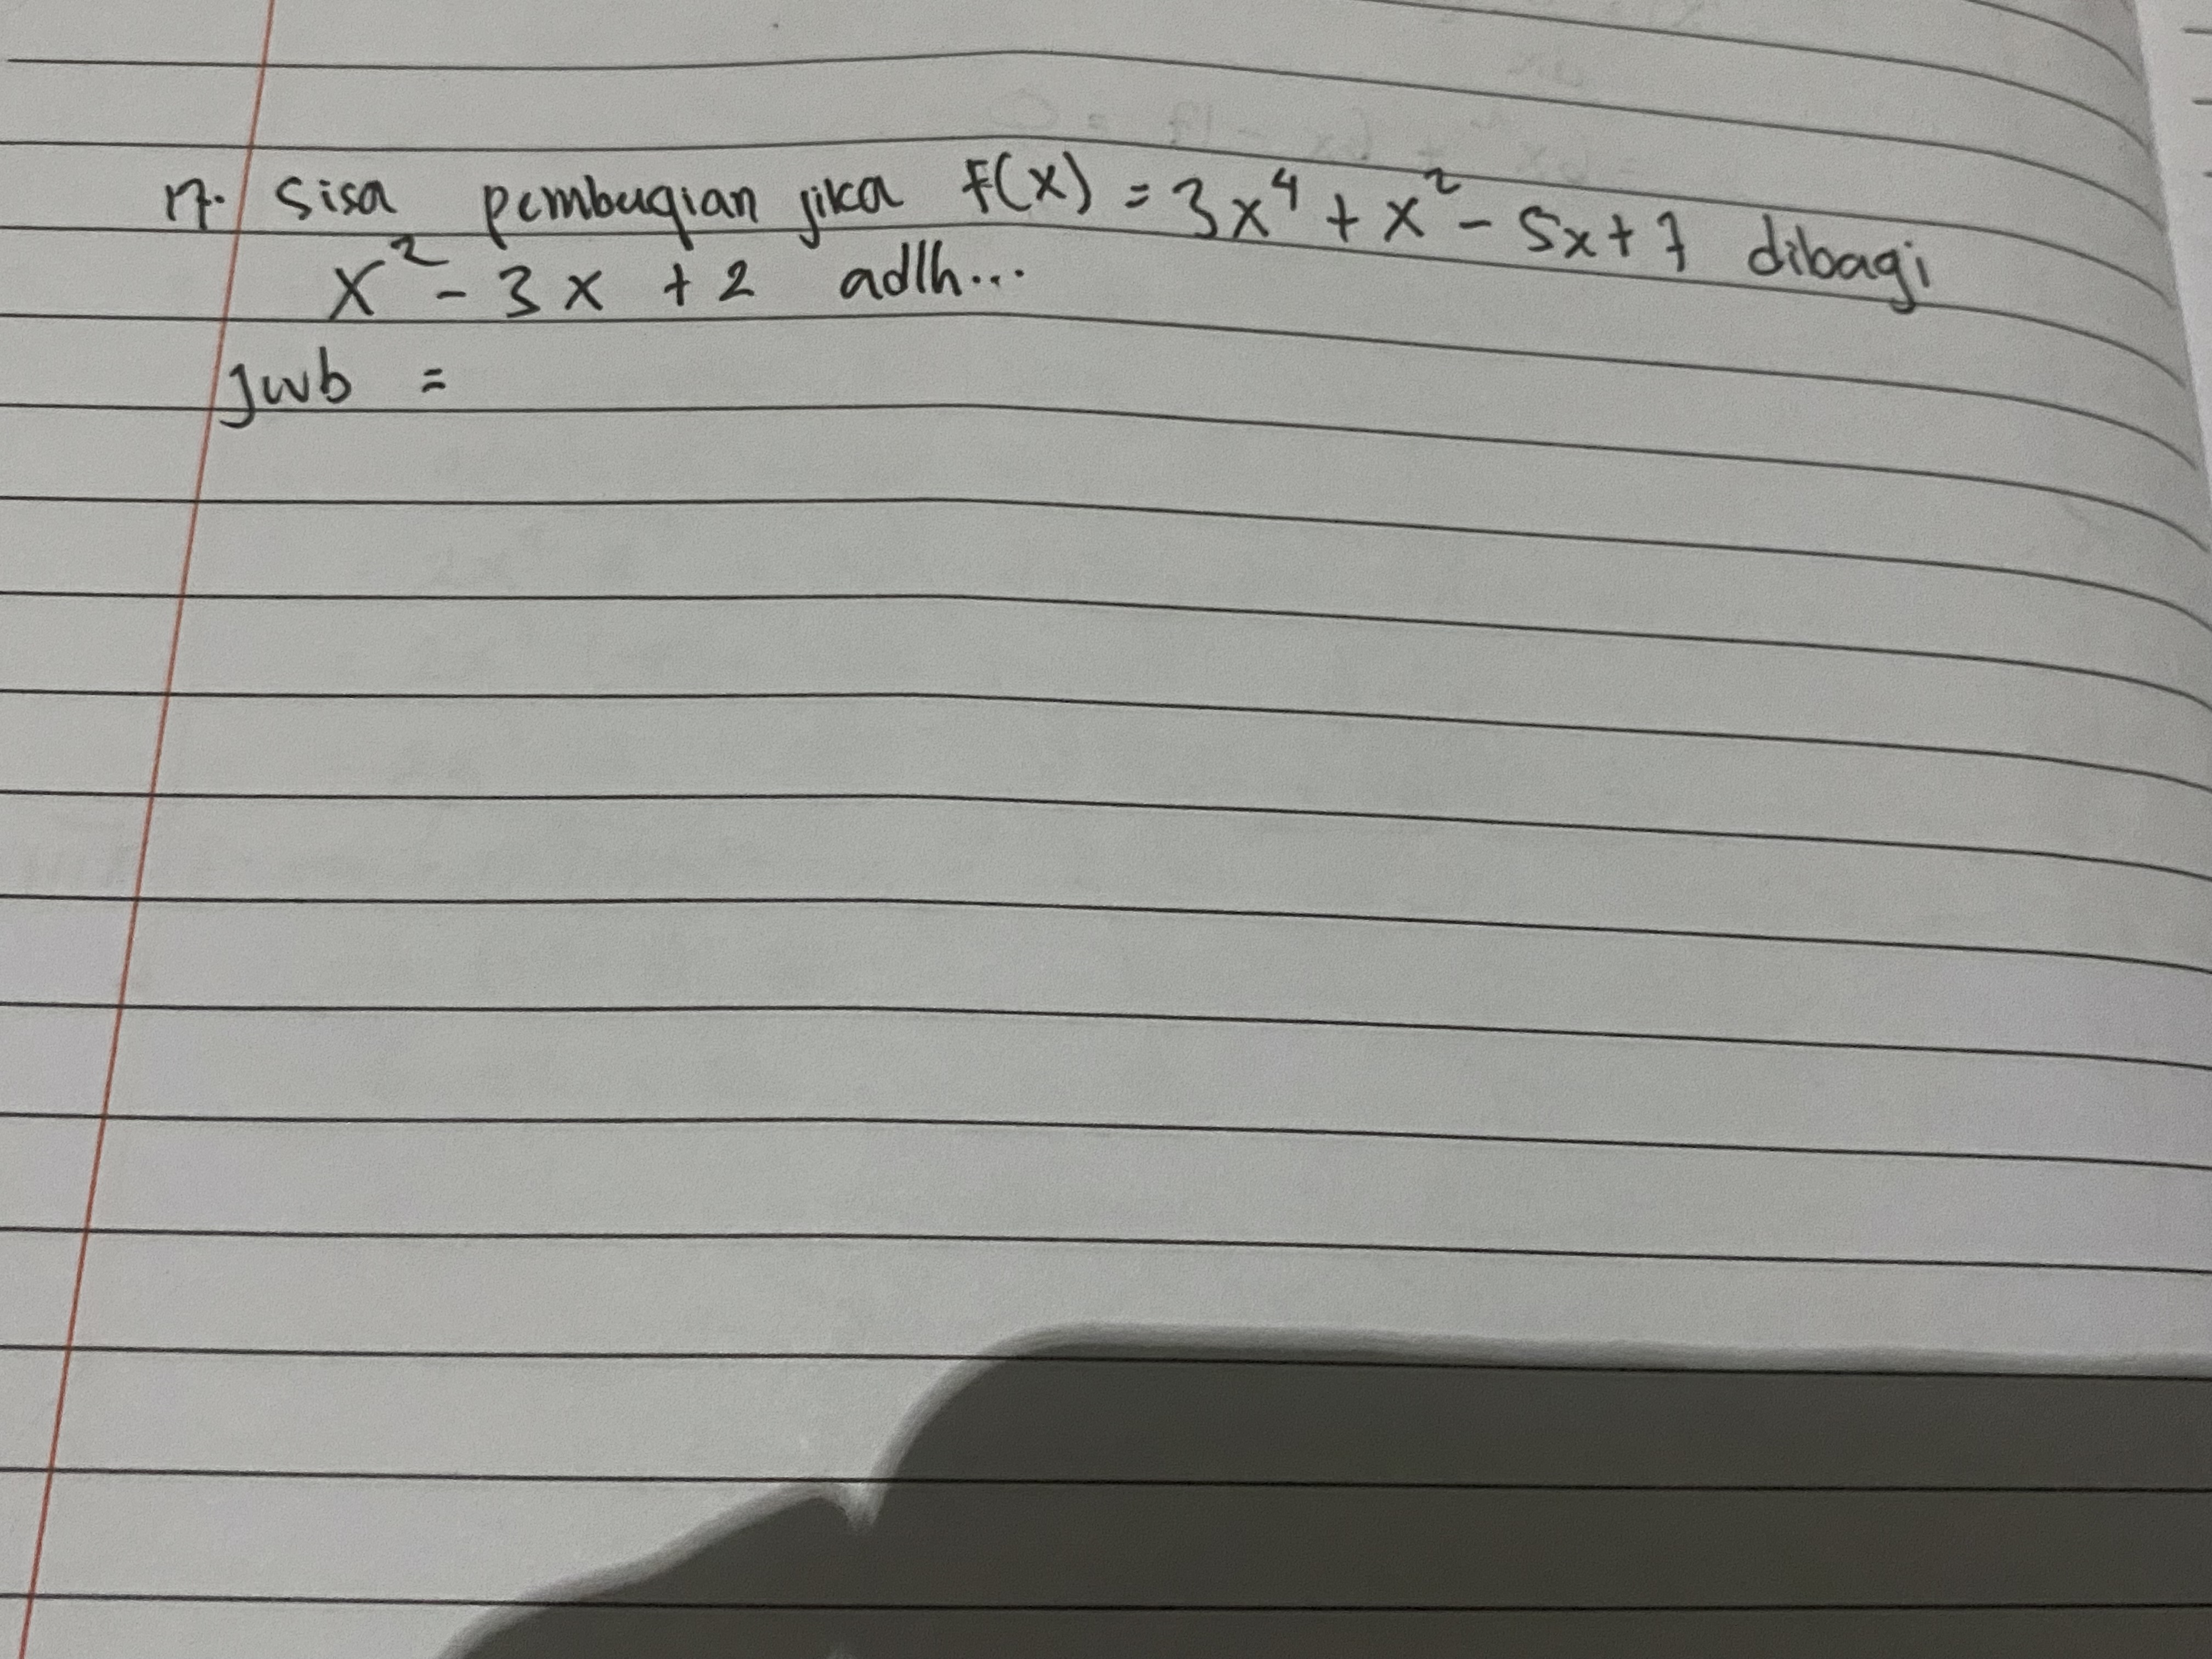 17. Sisa pembagian jika f(x) = 3x⁴ + x² - 5x + 1 dibagi
x² - 3x + 2 adlh...
Jwb =